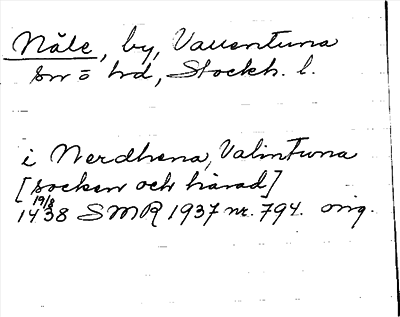 Nåle, by, Vallentuna
sn o hd, Stockh. l.
i Nerdhena, Valintuna
[socken och härad]
19/8
1438 SMR 1937 nr. 794. orig.